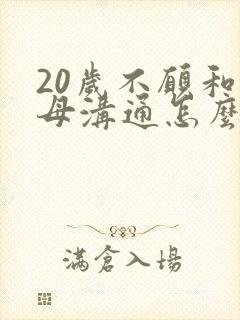 20歲不願和
母溝通怎麼
滿倉入場